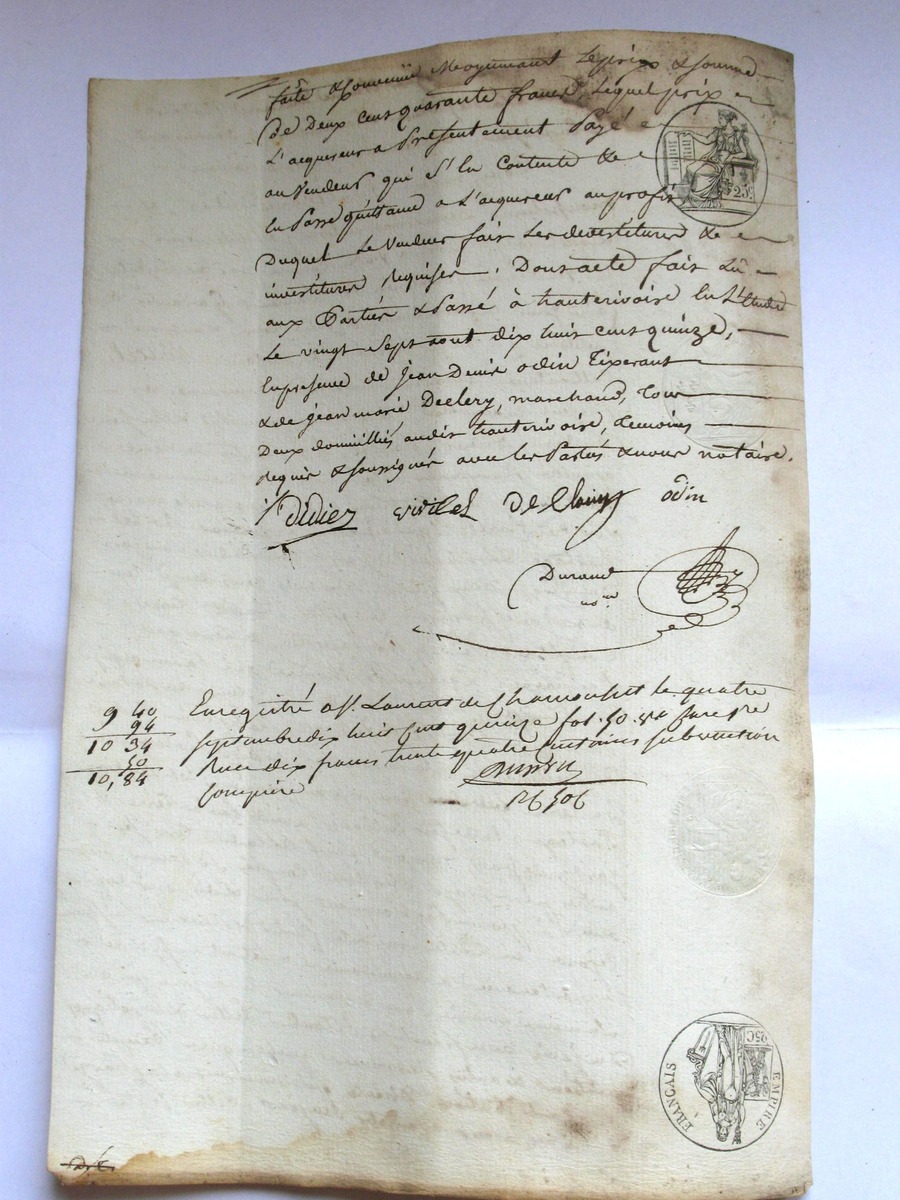 faite & convenüe Moyennant Le prix & somme
de Deux Cens quarante francs, Lequel prix
L'acquereur a Présentement Payé
au Vendeur qui s'en Contente &
En Passe quittance a L'acquereur au profit
Duquel Le Vendeur fait Les devestitures &
investitures Requises. Dont acte fait Lû
aux Parties & Passé à hauterivoire En L'Etude
Le vingt Sept aout dix huit cens quinze,
En presence de Jean Denis odin Tixerant
& de jean marie Declery, marchand, Tous
Deux domiciliés audit hauterivoire, temoins
Requis & soussignés avec les Parties & nous notaire.
Didier odin
Durand
nore
Enregistré a St. Laurent de Chamousset le quatre
septembre dix huit cent quinze fol. 50
Recu dix francs trente quatre centimes subvention
comprise
9 40
94
10 34
50
10,84
25c.
EMPIRE
FRANÇAIS
25C